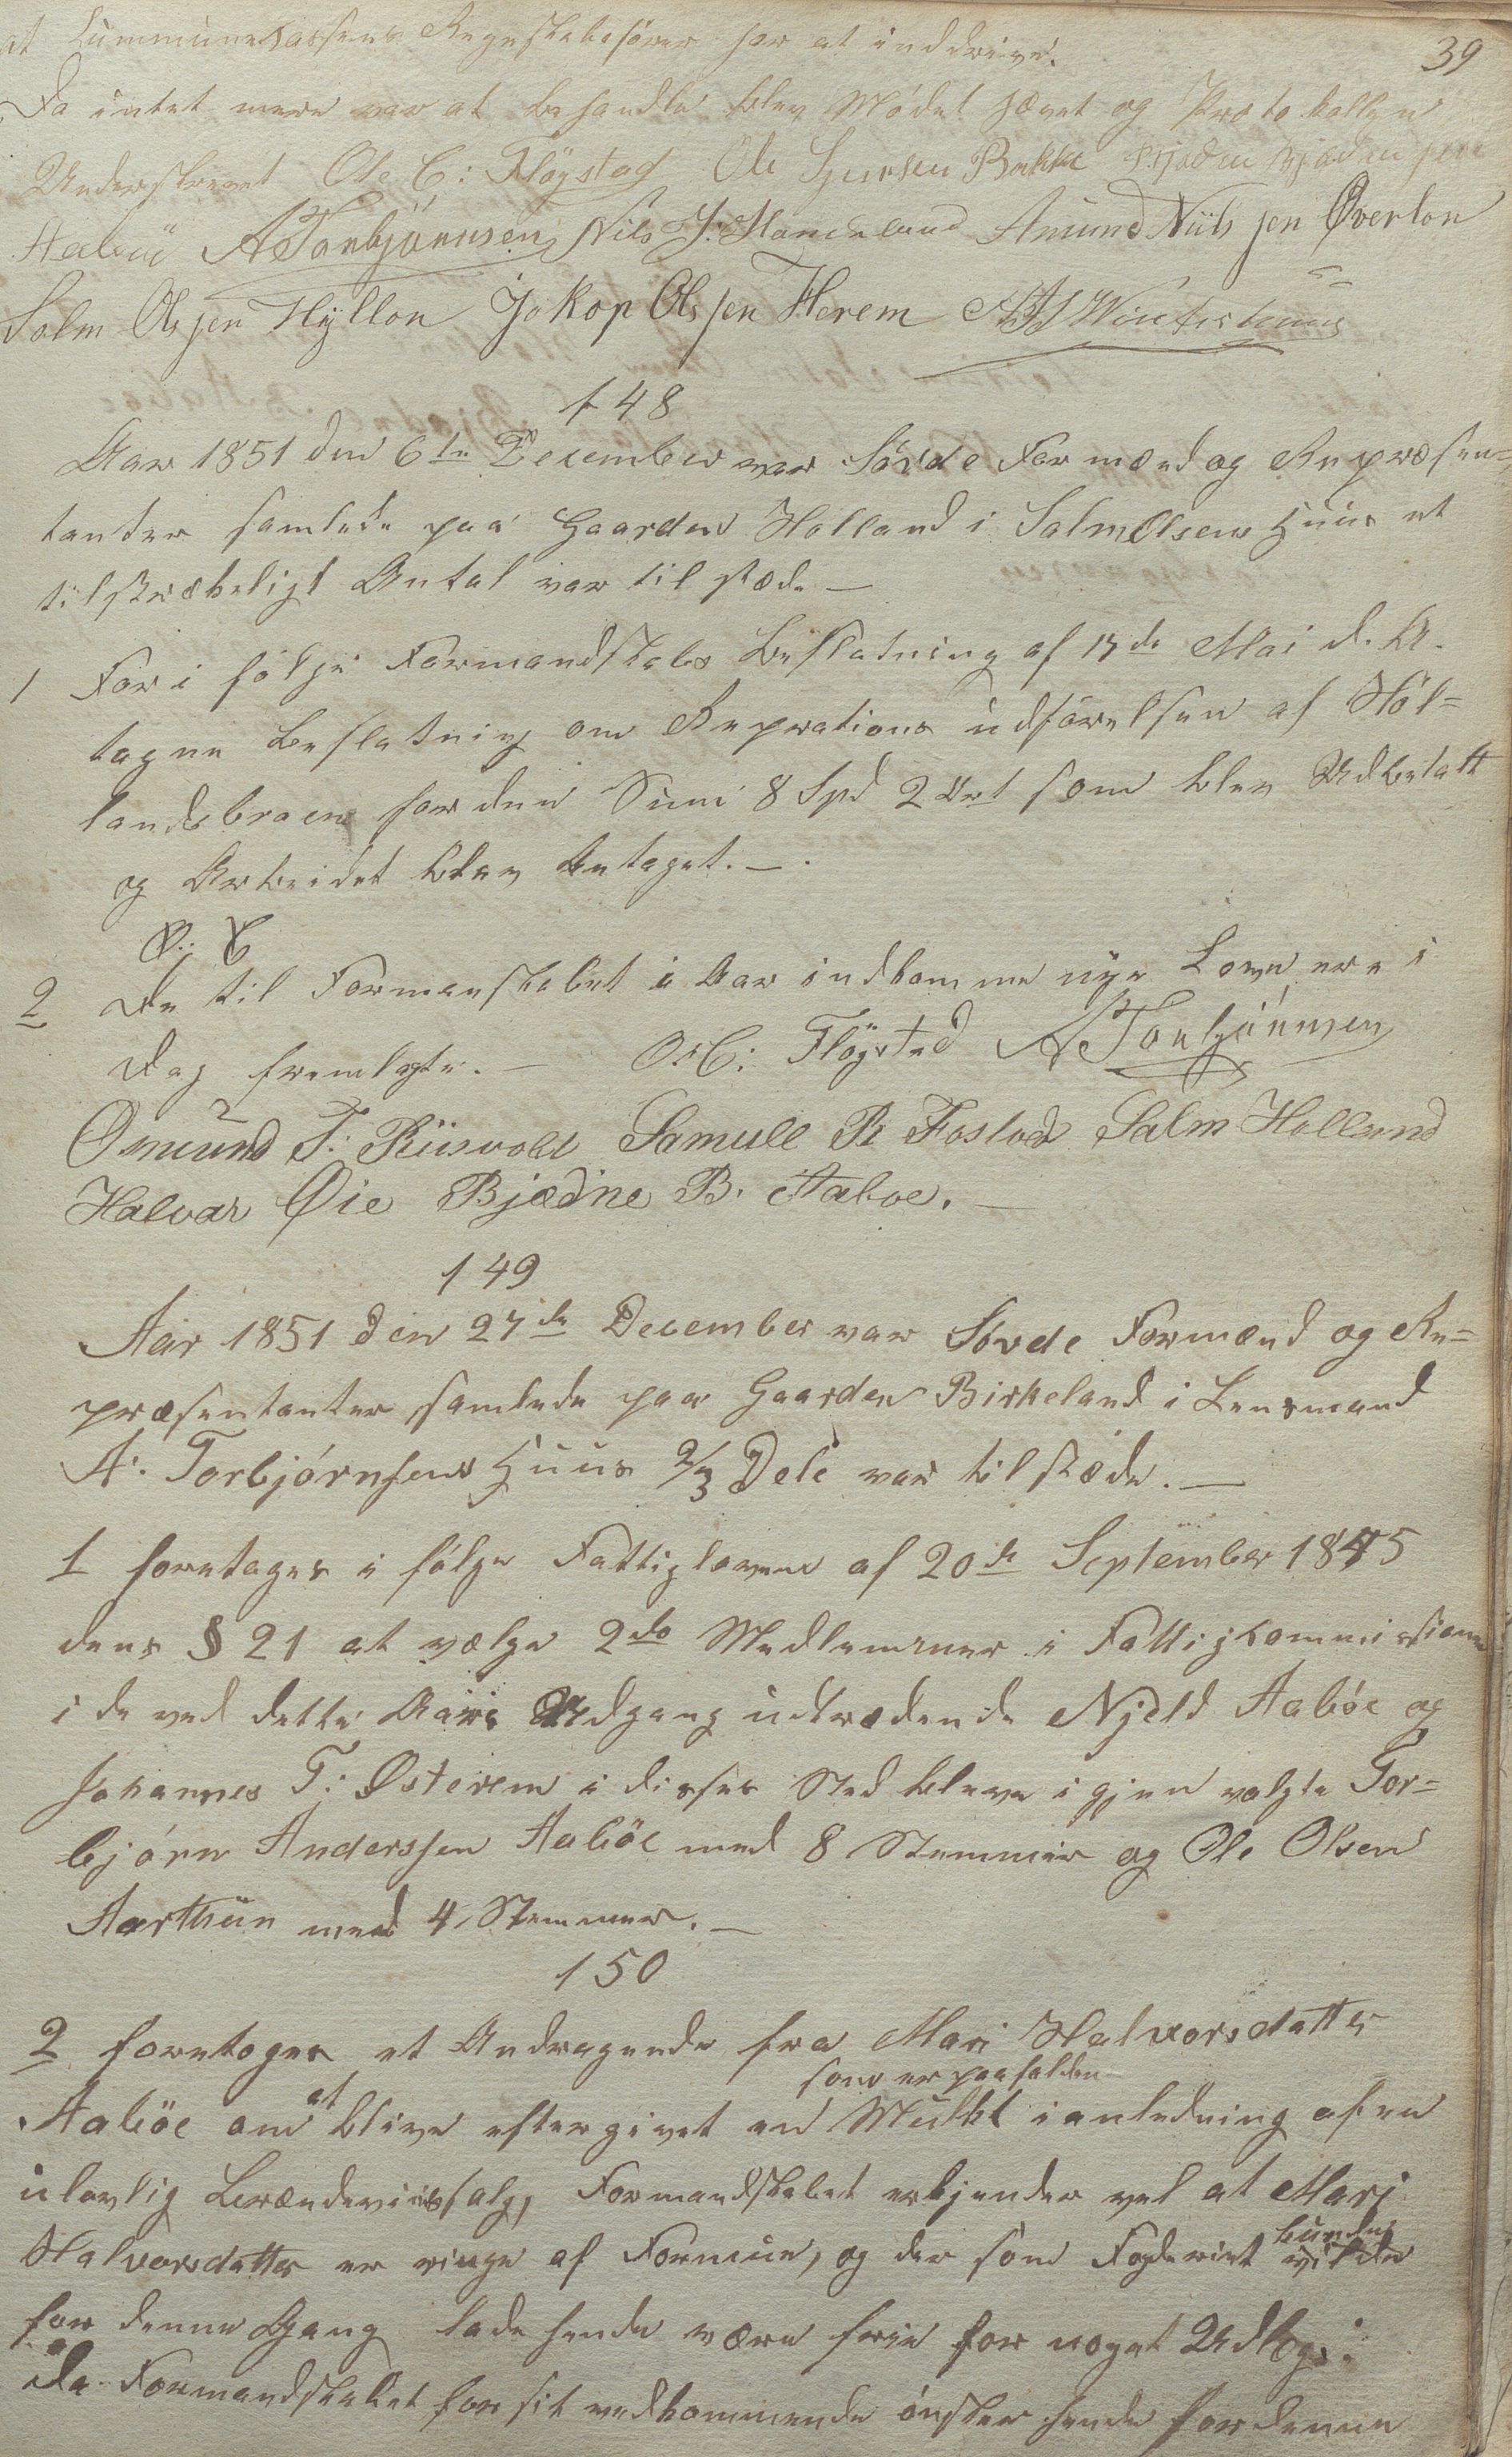 39
at Kummunekassens Regnskabsfører har at inddrive.
Da intet mere var at behandle blev Mødet hævet og Protokollen
Underskrevet Ole C: Fløystad Ole Bakke
Aabøe A Torbjönnsen Nils J: Handeland Amund Nils sen Øverlon
Salm Ols sen Hyllon Jokop Ols sen Herem
148
Aar 1851 den 6te December var Søvde Formænd og Repræsen=
tanter samlede paa Gaarden Holland i Salm Olsens Huus et
tilstrækeligt Antal var tilstæde —
1 For i følge Formandskabs Beslutning af 17de Mai d. A.
tagne Beslutning om Reprations udførelsen af Høl=
landsbroen for den Sum 8 Spd 2 Ort som blev Udbetalt
og Arbeidet blev Antaget. —
2 De til Formanskabet i Aar indkomme nye Love ere i
Dag fremlagte. — O. C: Fløgstad A Torbjönnsen
Osmund T: Riisvold Samuel R Foslod Salm Holland
Halvar Øie Bjædne B. Aaboe. —
149
Aar 1851 den 27de December var Søvde Formænd og Re=
præsentanter samlede paa Gaarden Birkeland i Lensmand
A. Torbjørnsens Huus 2/3 Dele var tilstæde. —
1 foretages i følge Fattigloven af 20de September 1845
dens § 21 at vælge 2do Medlemmer i Fattigkommissionen
i de ved dette Aars Udgang udtrædende Njeld Aabøe og
Johannes T: Østerem i disses Sted bleve igjen valgte Tor=
bjørn Anderssen Aabøe med 8 Stemmer og Ole Olsen
Aarthun med 4 Stemmer. —
150
2 foretoges et Andragende fra Mari Halvorsdatter
som er paafalden
Aabøe om at blive eftergivet en Mulkt i anledning af en
ulovlig Brændeviinssalg, Formandskabet erkjender vel at Mari
Halvorsdatter er ringe af Formue, og der som Fogderiet kunde vilde
for denne Gang lade hende være frie for noget Udlæg.
Da Formandskabet for sit vedkommende ønsker hende for denne